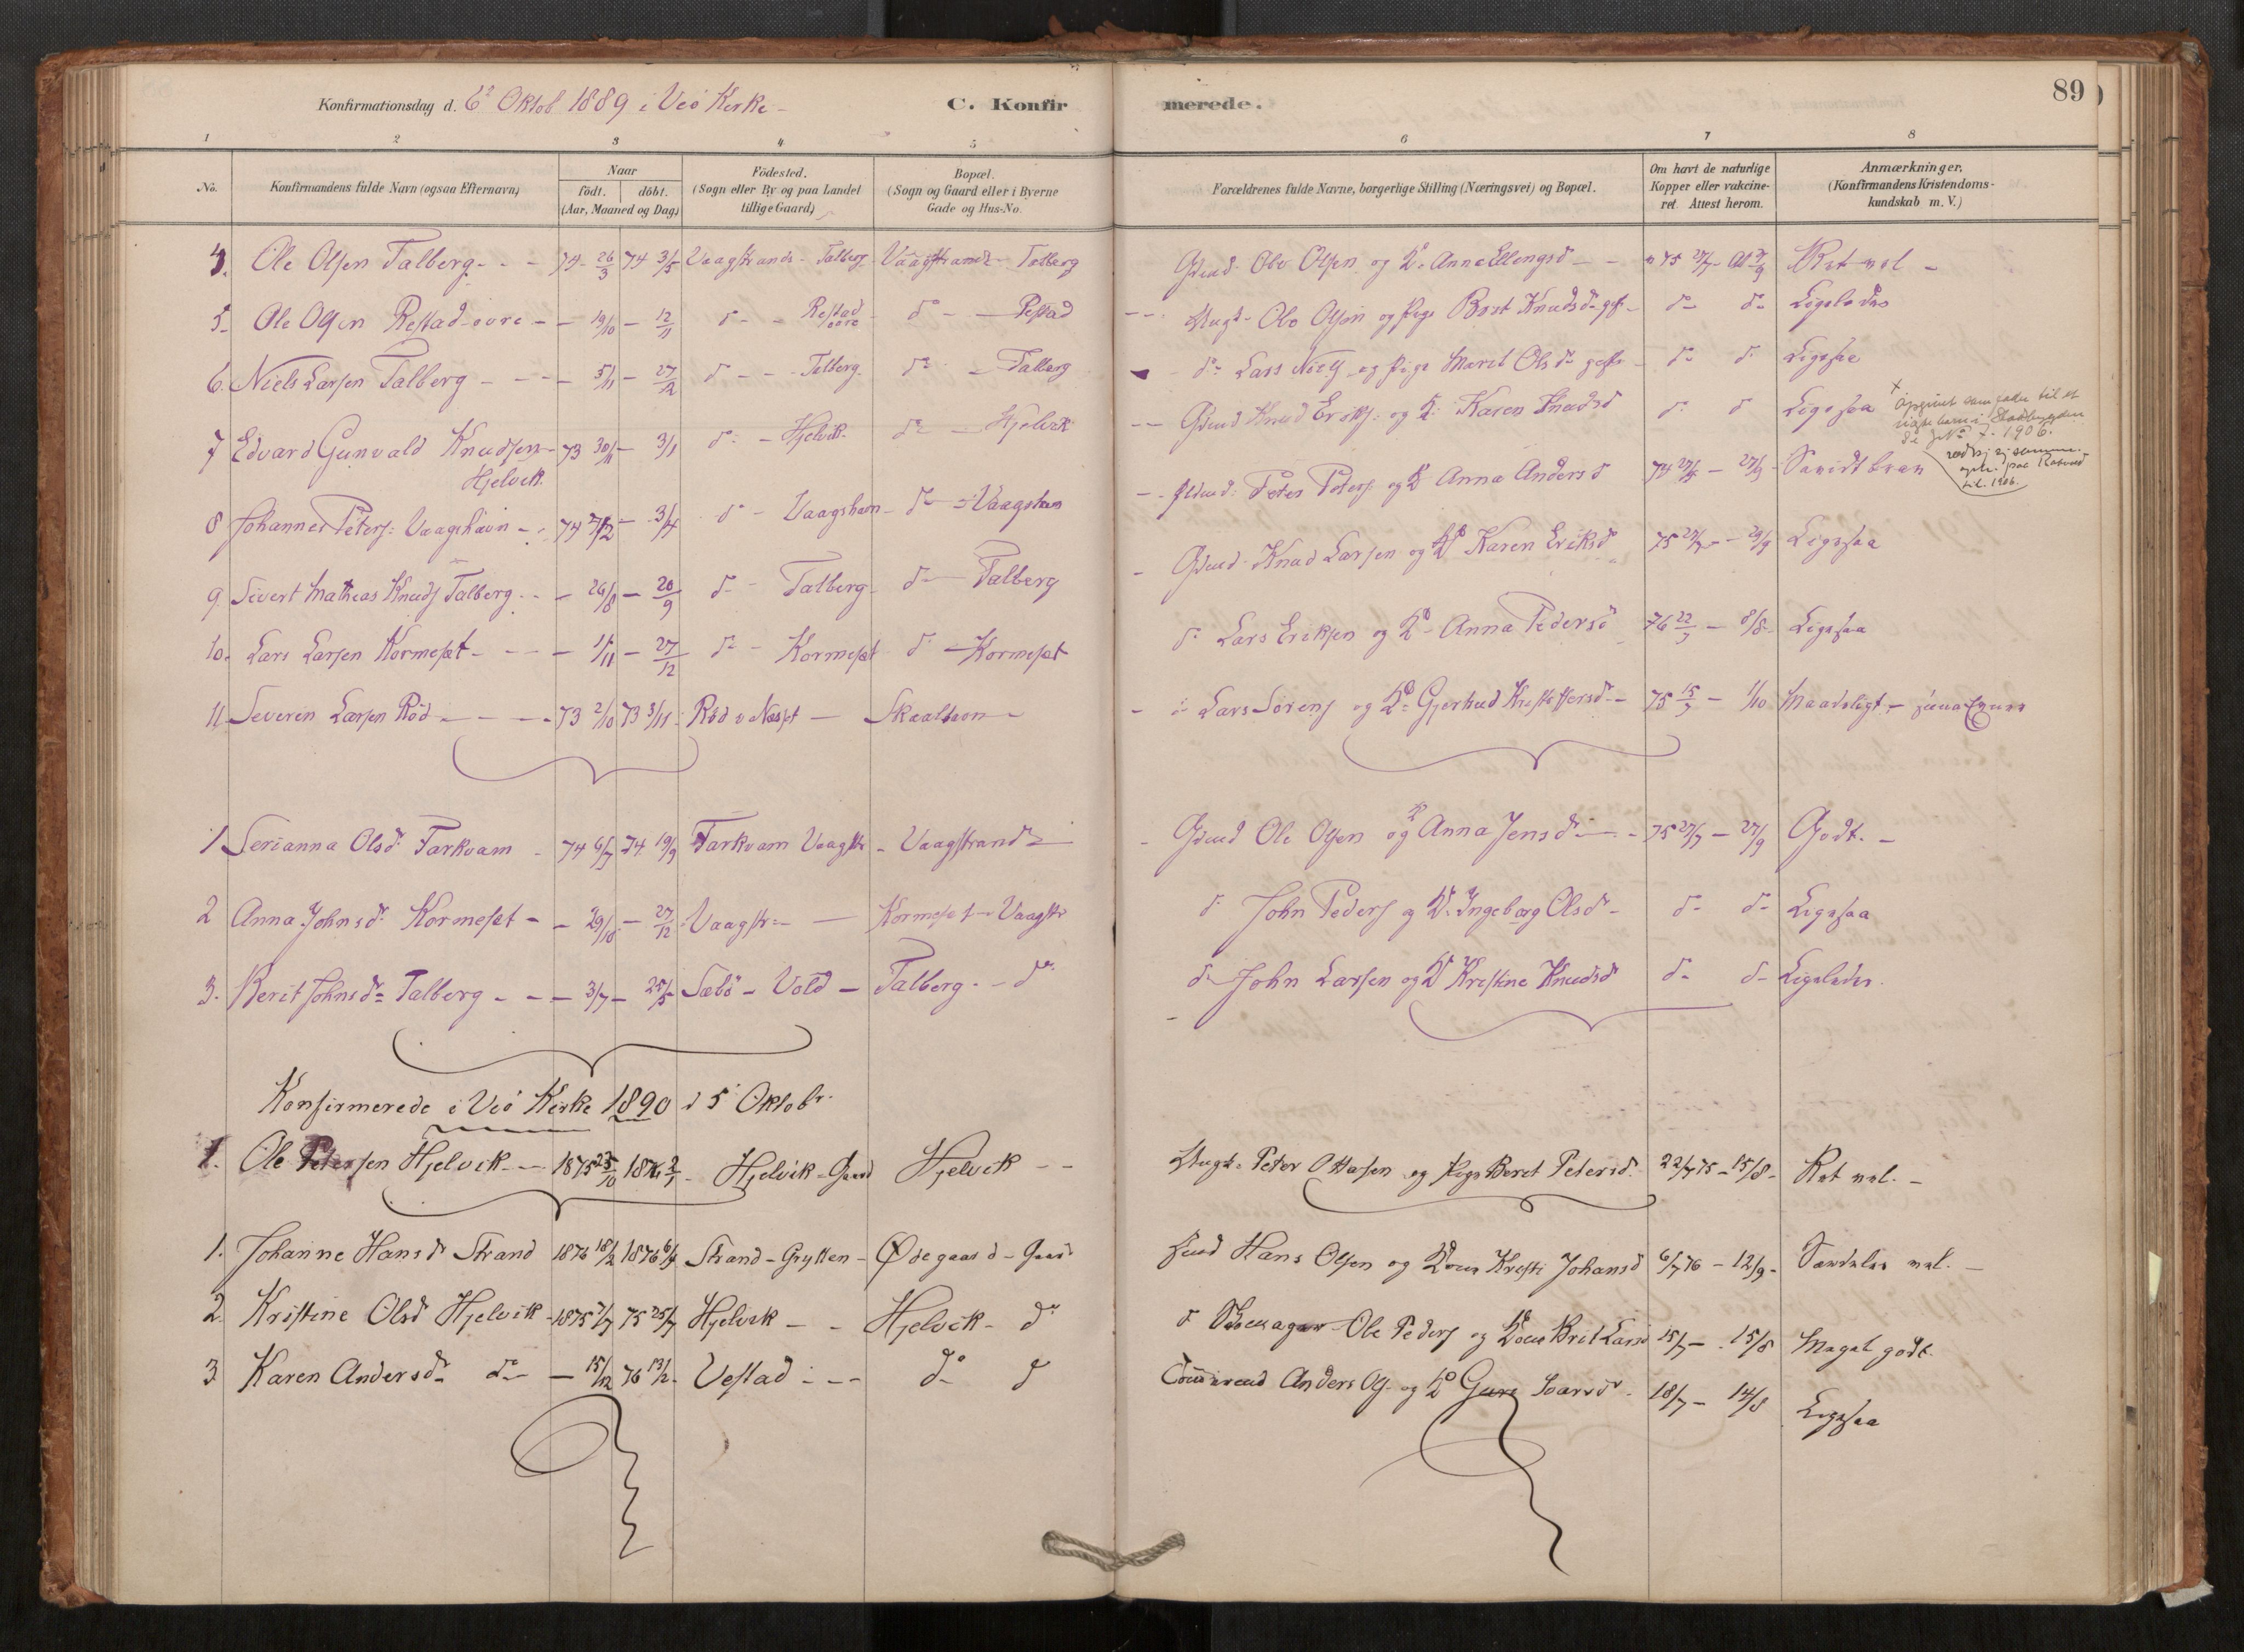 Konfirmationsdag d. 6 Oktob 1889 i Veö Kirke
C. Konfirmerede.
89
1 2 3 4 5 6 7 8
No.
Konfirmandens fulde Navn (ogsaa Efternavn)
Naar født. døbt. (Aar, Maaned og Dag)
Födested. (Sogn eller By og paa Landet tillige Gaard)
Bopæl. (Sogn og Gaard eller i Byerne Gade og Hus-No.
Forældrenes fulde Navne, borgerlige Stilling (Næringsvei) og Bopæl.
Om havt de naturlige Kopper eller vakcineret. Attest herom.
Anmærkninger, (Konfirmandens Kristendomskundskab m. V.)
4. Ole Olsen Talberg - - 74 26/3 74 3/5 Vaagstrands - Talberg Vaagstrands - Talberg Gmd Ole Olsen og K. Anne Ellingsd - 75 27/7 Ret vel -
5. Ole Olsen Restad övre - - 19/10 - 12/11 do - Restad övre do - Restad Ungk. Ole Olsen og Pige Brit Knudsd do do Ligeledes
6. Niels Larsen Talberg - - - 5/11 - 27/12 do - - Talberg do - Talberg do Lars Niels og Pige Marit Olsd do do Ligesaa
7 Edvard Gunvald Knudsen Hjelvik 73 30/11 - 3/1 do - Hjelvik do - Hjelvik Gmd Knud Eriks: og K. Karen Knudsd do do Ligesaa
8 Johannes Peters: Vaagshavn - 74 7/2 - 3/4 do - Vaagshavn - do - Vaagshavn Peter Peters og K Anna Andersd 74 27/5 - 27/9
9. Sivert Mathias Knuds Talberg - - 26/8 - 20/9 do - Talberg - do - Talberg Gmd Knud Larsen og K Karen Eriksd 75 27/7 - 29/9 Ligesaa
10. Lars Larsen Kormeset - - - 1/11 - 27/12 do - Kormeset do - Kormeset do Lars Eriksen og K Anna Pedersd 76 22/7 - 8/8 Ligesaa
11 Severin Larsen Röd - - - 73 2/10 73 3/11 Röd v Nesset - Skaalhavn - do Lars Sörens og K. Gjertrud Kristoffersd - 75 15/7 - 1/10 Maadeligt -
1 Serianna Olsd Tarkvam - 74 6/7 74 19/9 Tarkvam Vaagstr - Vaagstrand - Gmd Ole Olsen og K Anna Jensd - 75 27/7 - 27/9 Godt. -
2 Anna Johnsd Kormeset - - 29/10 - 27/12 Vaagstr - Kormeset - Vaagstr do John Peders og K. Ingeborg Olsd - do do Ligesaa
3. Berit Johnsd Talberg - - - 3/7 - 25/5 Sæbö - Vold - Talberg - do do John Larsen og K Kristine Knudsd do do Ligeledes
Konfirmerede i Veö Kirke 1890 d 5 Oktobr.
1. Ole Petersen Hjelvik - 1875 25/10 1876 2/1 - Hjelvik - Gaard Hjelvik - - Ungk. Peter Ottosen og Pige Beret Petersd. 22/7 75 - 15/8 - Ret vel. -
1. Johanne Hansd Strand 1876 18/2 1876 6/4 Strand - Grytten - Ødegaard - Gaard Hans Olsen og Kone Kristi Johansd 6/7 76 - 12/9 - Særdeles vel. -
2. Kristine Olsd Hjelvik - 1875 7/7 75 25/7 Hjelvik - - Hjelvik - do do Skomager Ole Peders og Kone Brit Larsd 15/7 - 15/8 Meget godt.
3 Karen Andersd do - 15/12 76 13/2 - Vestad - - do do Tömmermd Anders Ols og K Guri 18/7 - 14/8 Ligesaa